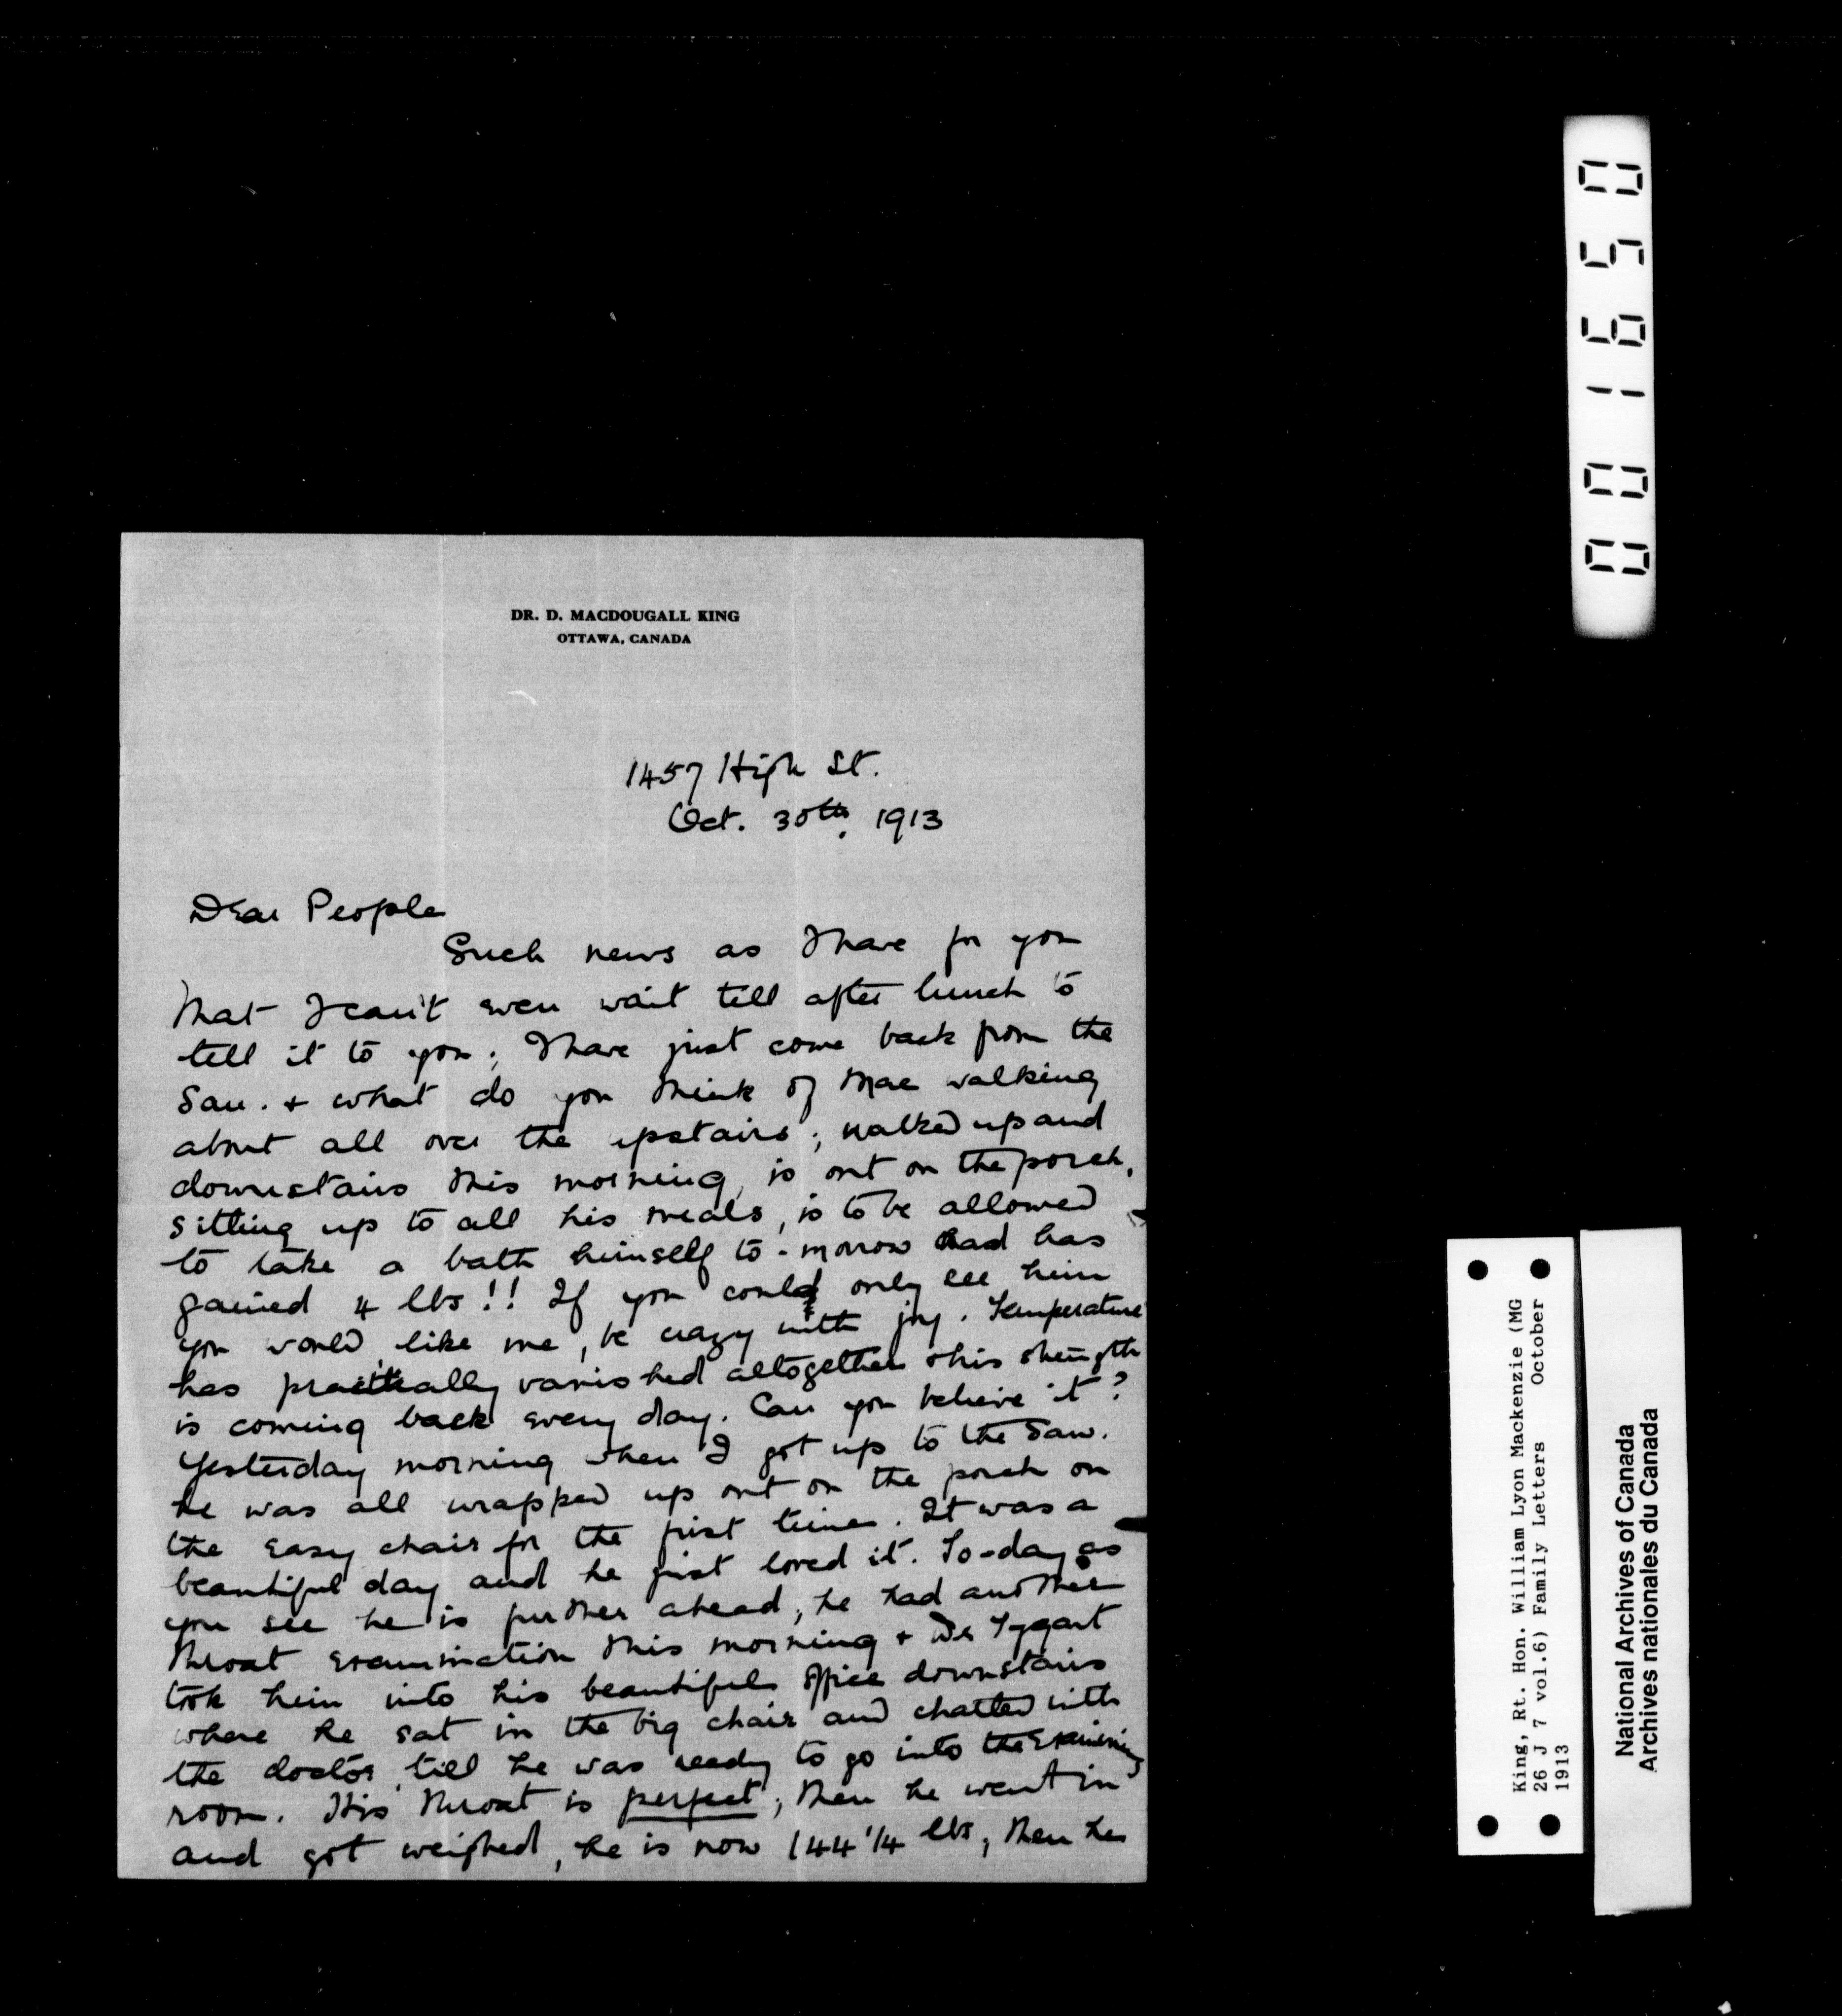 DR. D. MACDOUGALL KING
OTTAWA, CANADA
1457 High St.
Oct. 30th. 1913
Dear People
Such news as I have for you
that I can't even wait till after lunch to
tell it to you; I have just come back from the
San. + what do you think of Mac walking
about all over the upstairs; walked up and
downstairs this morning, is out on the porch,
sitting up to all his meals, is to be allowed
to take a bath himself to-morrow and has
gained 4 lbs!! If you could only see him
you would like me, be crazy with joy. Temperature
has practically vanished altogether + his strength
is coming back every day. Can you believe it?
Yesterday morning when I got up to the San.
he was all wrapped up out on the porch on
the easy chair for the first time. It was a
beautiful day and he just loved it. To-day as
you see he is further ahead, he had another
throat examination this morning + Dr Tygart
took him into his beautiful office downstairs
where he sat in the big chair and chatted with
the doctor till he was ready to go into the examining
room. His throat is perfect; then he went in
and got weighed, he is now 144 1/4 lbs, then he
001650
King, Rt. Hon. William Lyon Mackenzie (MG
26 J 7 vol.6) Family Letters October
1913
National Archives of Canada
Archives nationales du Canada